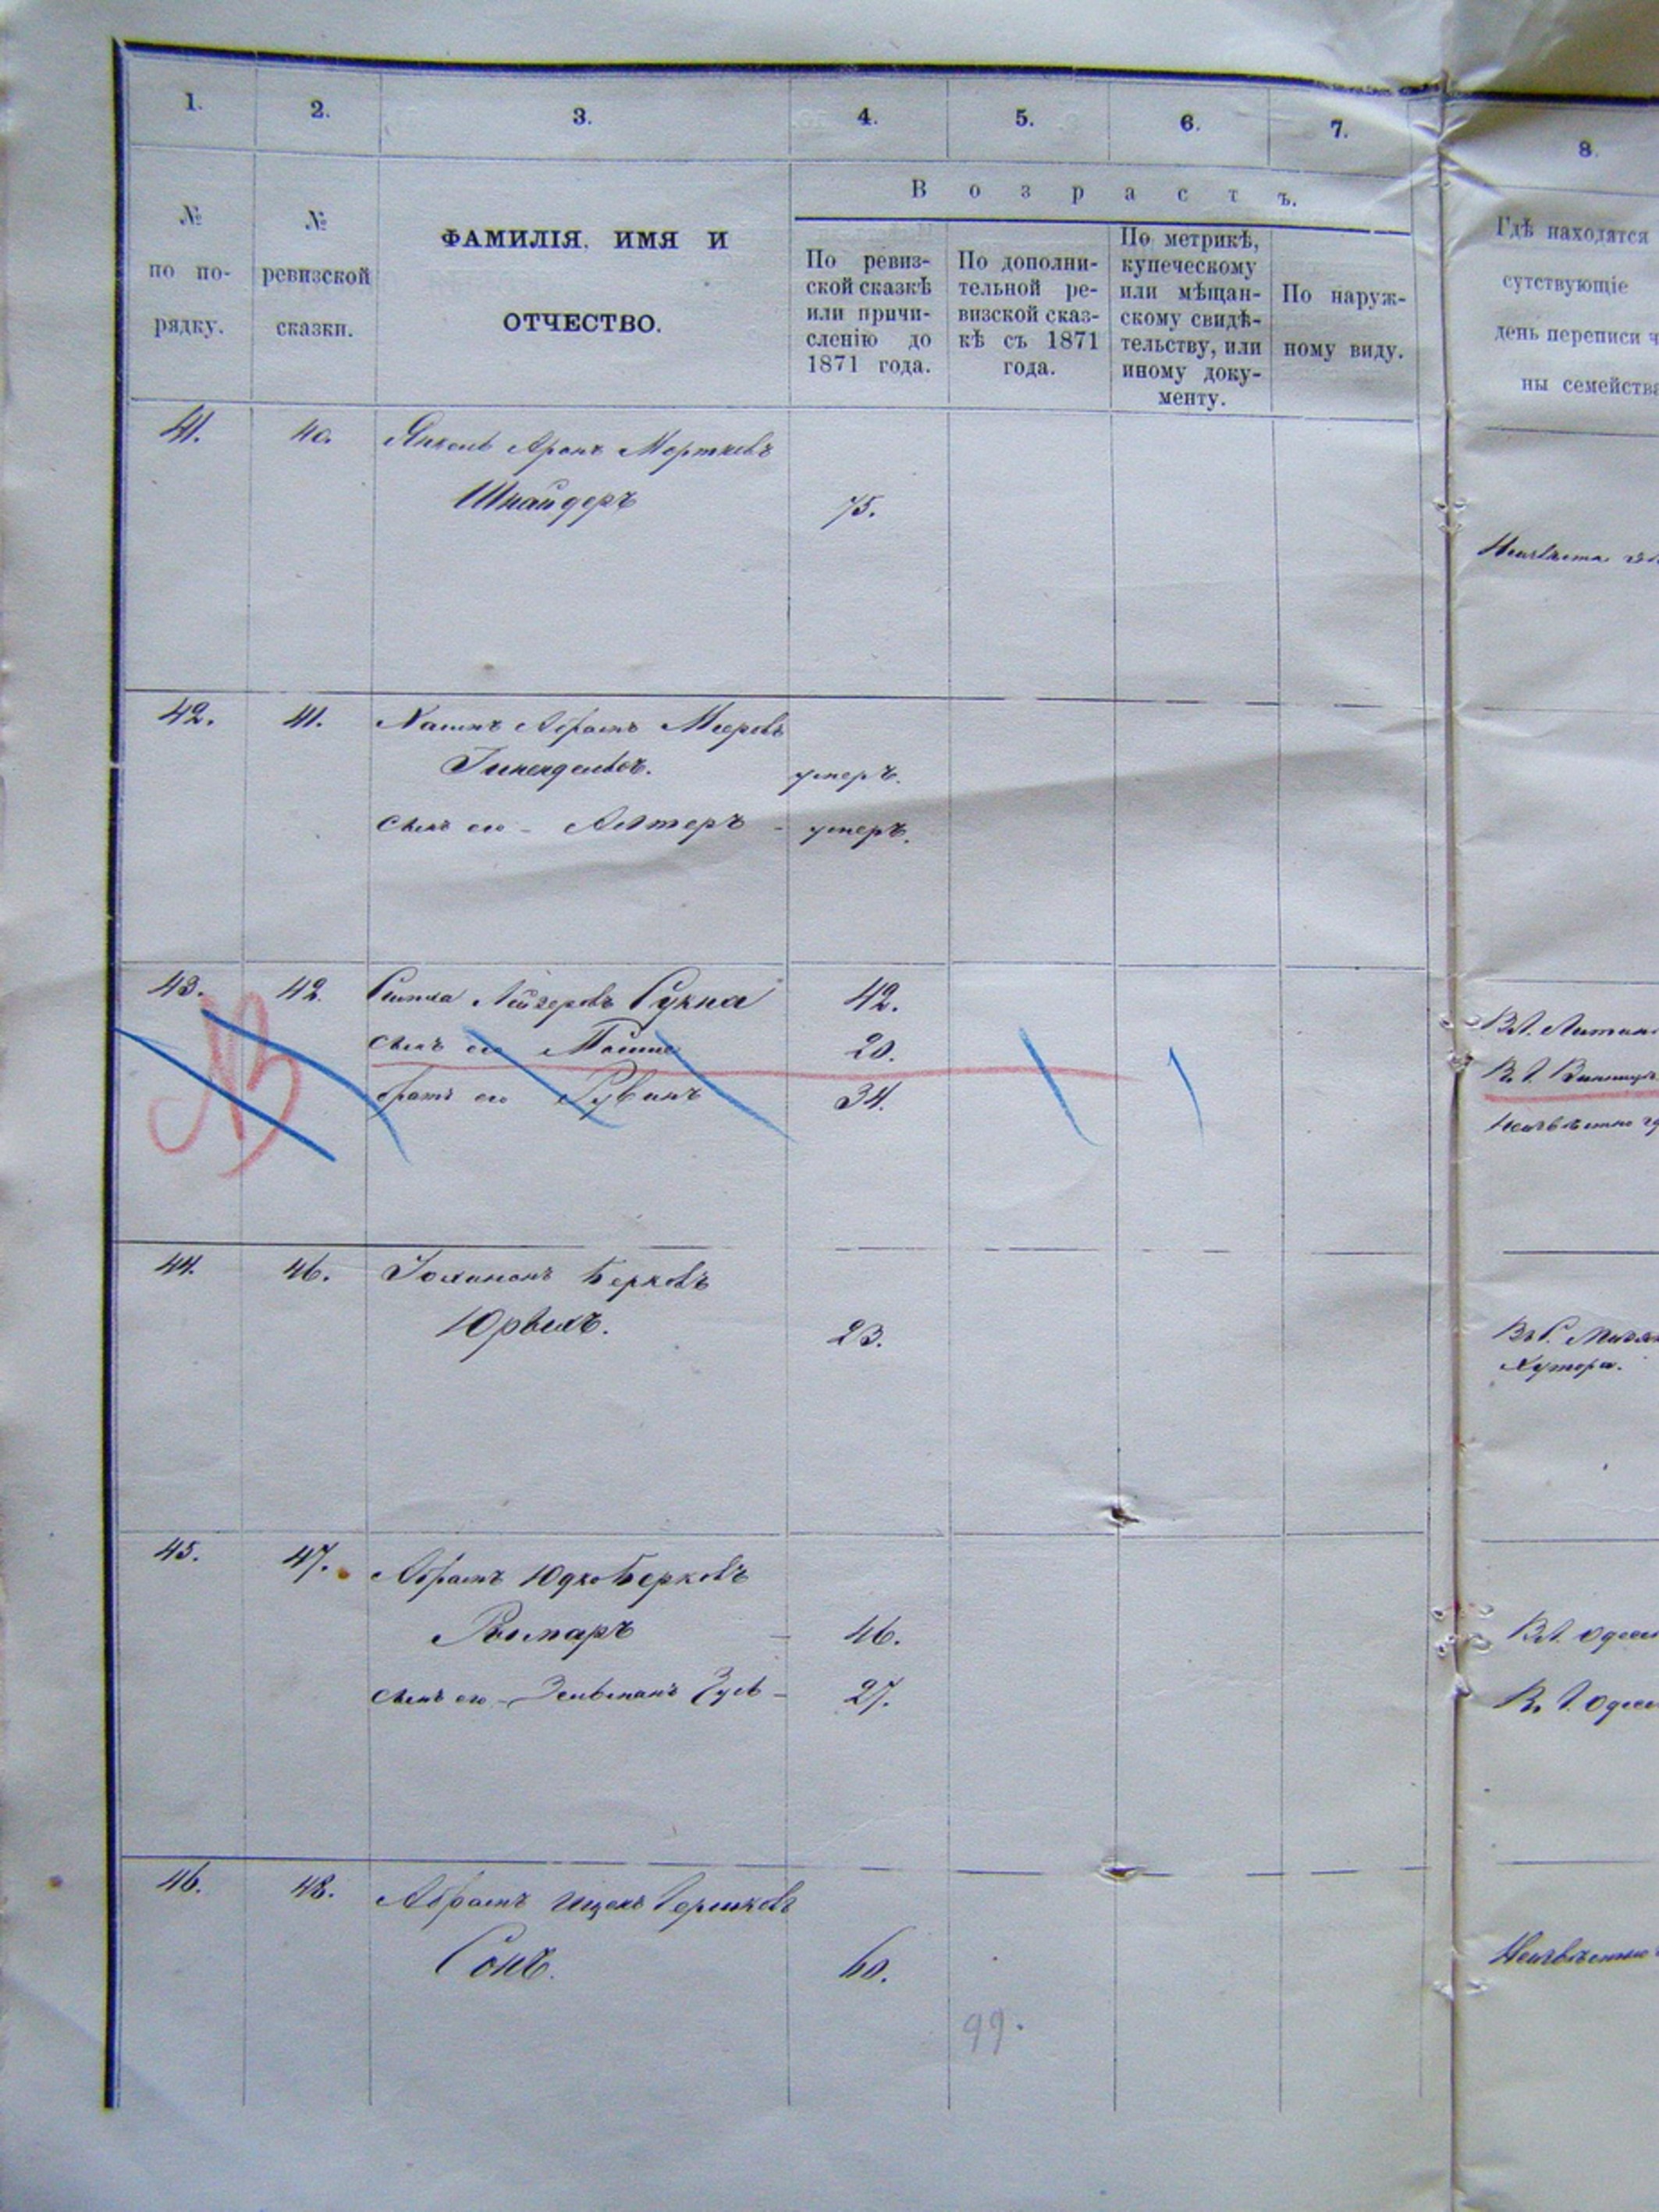 1. 2. 3. 4. 5. 6. 7. 8.
В о з р а с т ъ.
№
по по-
рядку.
№
ревизской
сказки.
ФАМИЛІЯ, ИМЯ И
ОТЧЕСТВО.
По ревиз-
ской сказкѣ
или причи-
сленію до
1871 года.
По дополни-
тельной ре-
визской сказ-
кѣ съ 1871
года.
По метрикѣ,
купеческому
или мѣщан-
скому свидѣ-
тельству, или
иному доку-
менту.
По наруж-
ному виду.
Гдѣ находятся
сутствующіе
день переписи ч
ны семейства
41. 40. Янкель Аронъ Мортковъ
Шнайдеръ 75.
42. 41. Хаимъ Абрамъ Мееровъ
умеръ.
сынъ его - Алтеръ - умеръ.
43. 42. Лейзеровъ 42.
сынъ его Мошко 20.
братъ его Рувинъ 34.
Неизвѣстно
44. 46. Іохананъ Берковъ
23.
Хутора.
45. 47. Абрамъ Юдко Берковъ
Рымаръ - 46.
сынъ его - Зельманъ Зусь - 27.
46. 48. Абрамъ Ицекъ Гершковъ
Сонъ. 60.
Неизвѣстно
99.